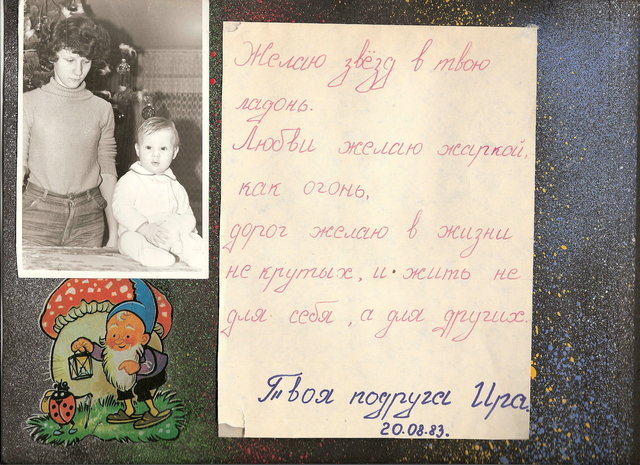 Желаю звёзд в твою
ладонь.
Любви желаю жаркой,
как огонь,
дорог желаю в жизни
не крутых, и жить не
для себя, а для других.
Твоя подруга Ира.
20.08.83.